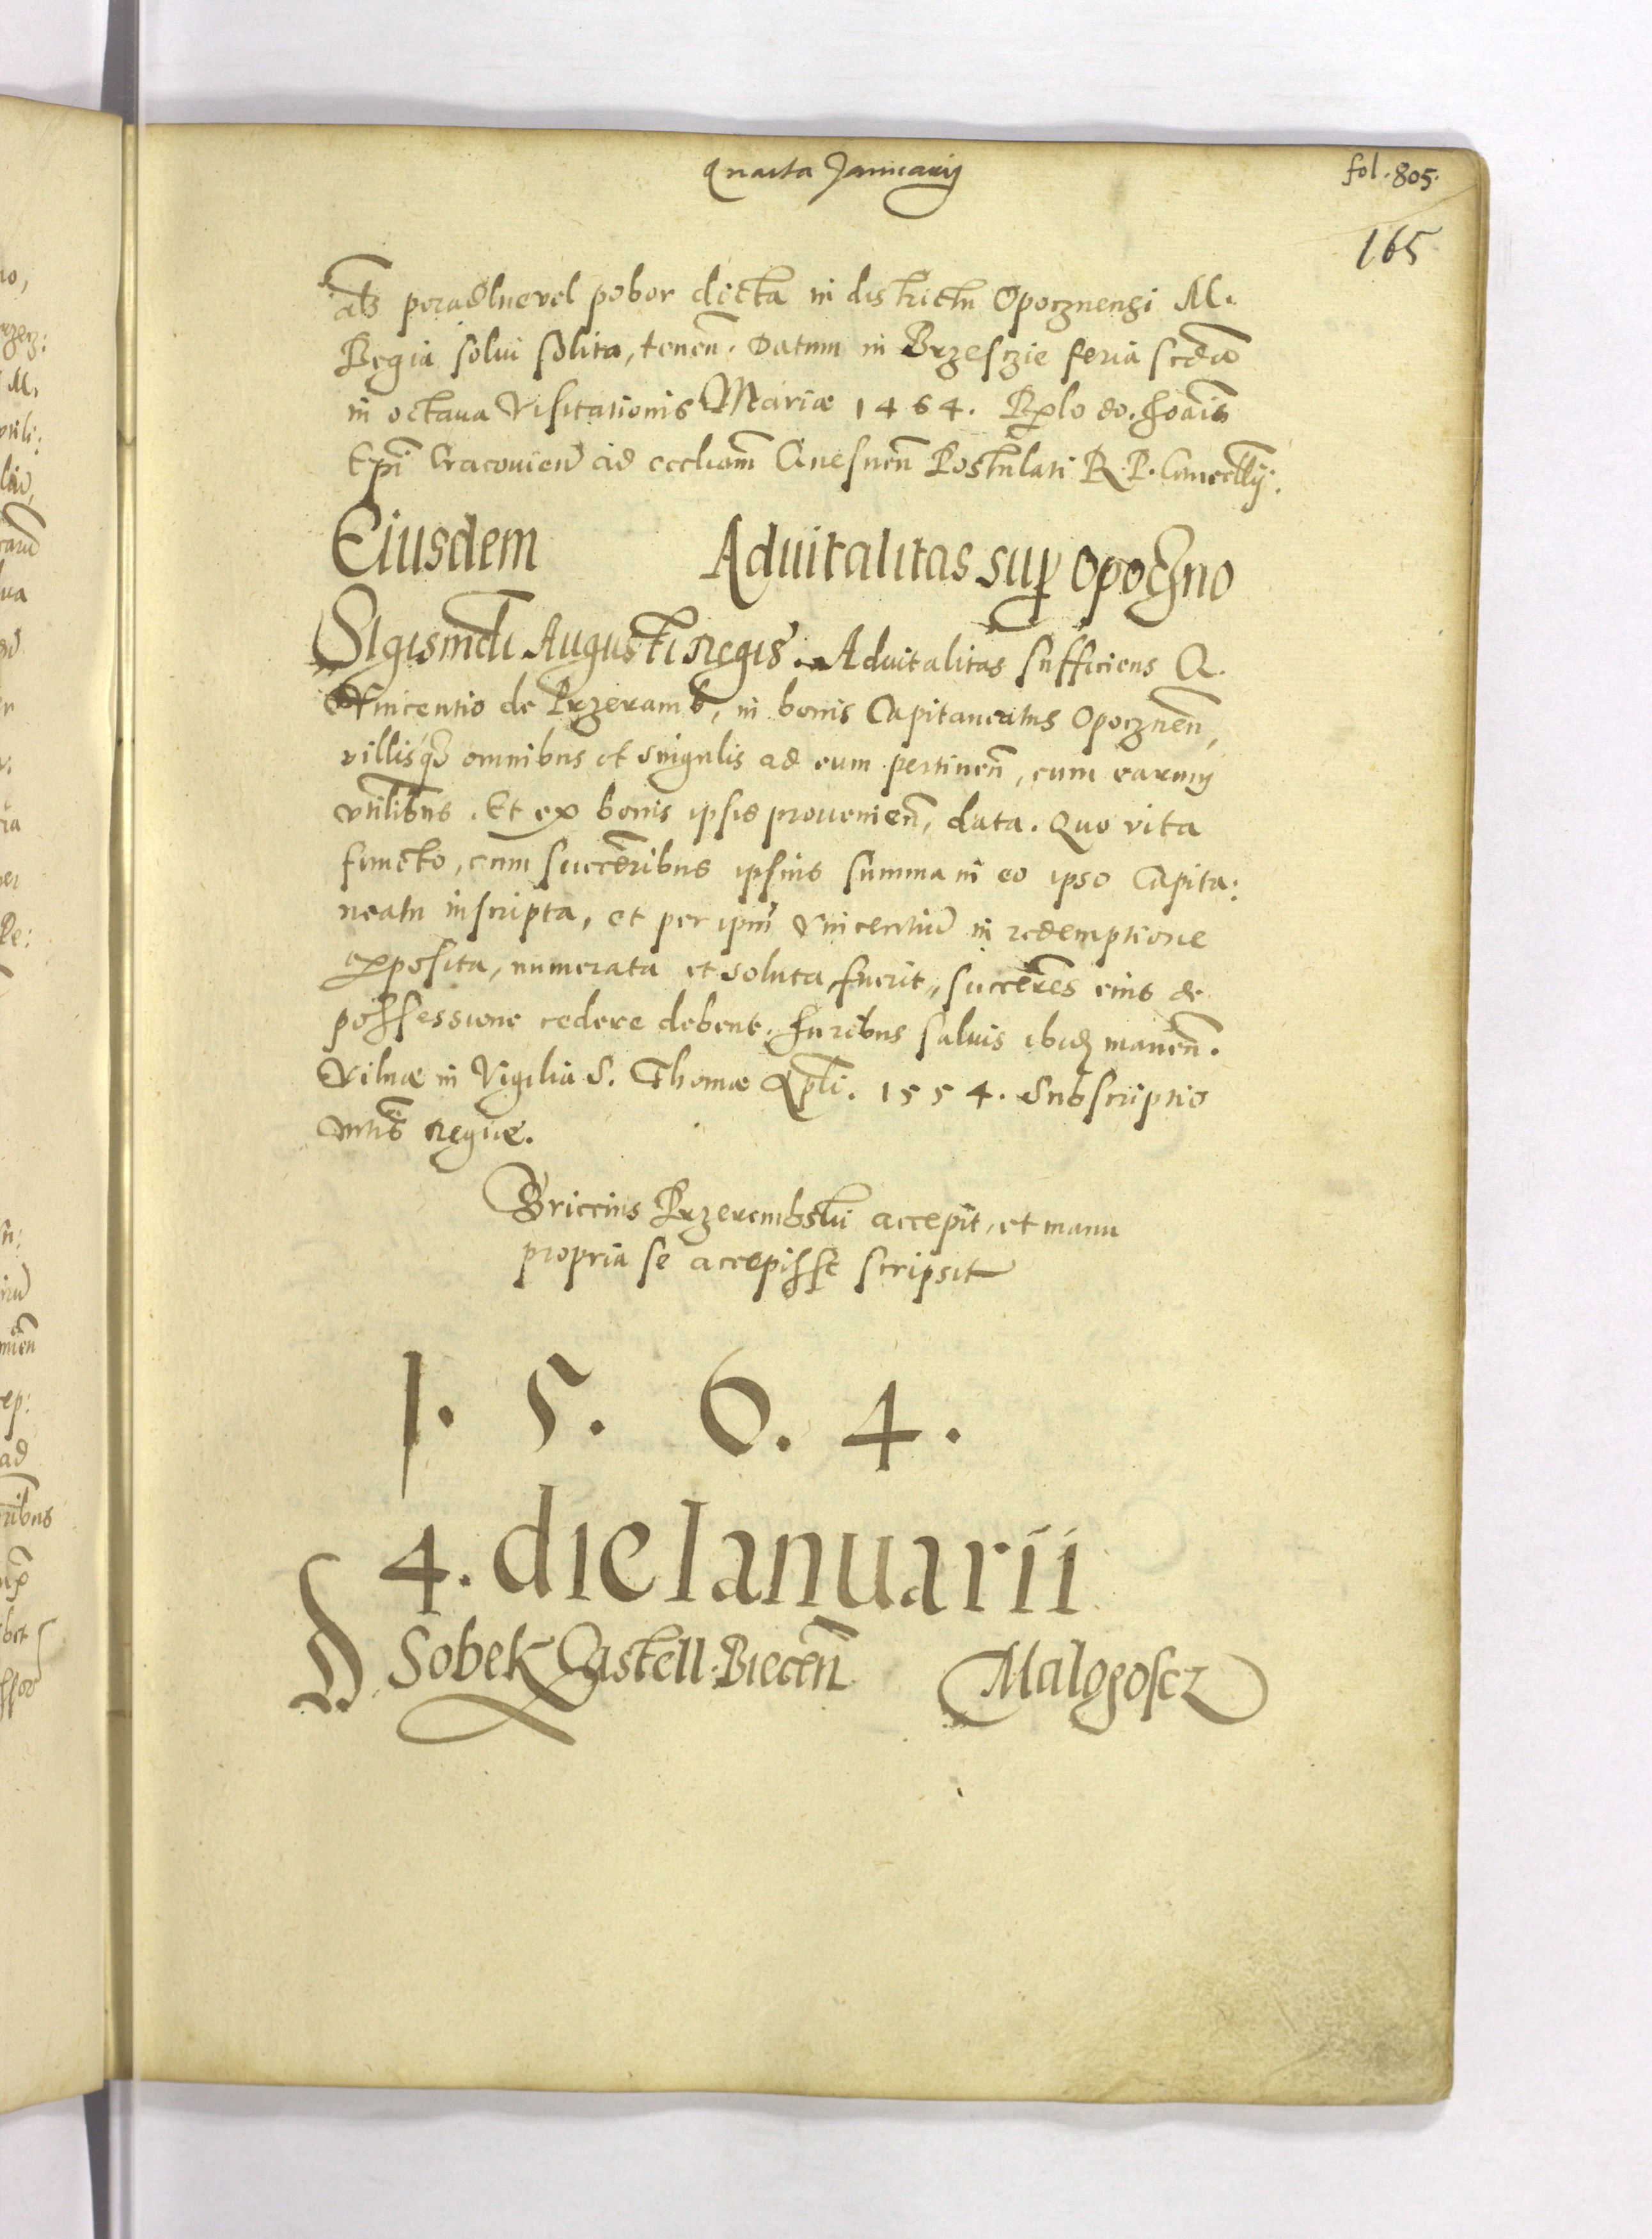 Quarta Januarij
fol. 805.
165
poradlne vel pobor dicta in districtu Opocznensi M.
Regia solui solita, tenen̄. Datum in Brzesczie feria scďa
in octaua Visitationis Mariæ 1464. Rǫlo do. Joāis
Ep̄i Cracouien̄ ad eccliam̄ Gnesnen̄ Postulati R. P.
Eiusdem Aduitalitas sup Opoczno
Sigismūdi Augusti Regis. Aduitalitas sufficiens G.
Vincentio de Przeramb, in bonis Capitaneatus Opocznen̄,
villisq̃ omnibus et singulis ad eum pertinen̄, cum earum
vtilibus. Et ex bonis ipsis prouenien̄, data. Quo vita
functo, cum succerībus ipsius summa in eo ipso Capita:
neatu inscripta, et per ipm̄ Vincentiū in redemptione
exposita, numerata et soluta fuerit, succerēs eius de
possessione cedere debent. Juribus saluis ibidę manen̄.
Vilnæ in Vigilia S. Thomæ Apl̄i. 1554. Subscriptio
Mtis̄ Regiæ.
Briccius Przerembski accepit, et manu
propria se accepisse scripsit
1. 5. 6. 4.
4. die Ianuarii
D. Sobek Castell. Biecen̄ Malogoscz